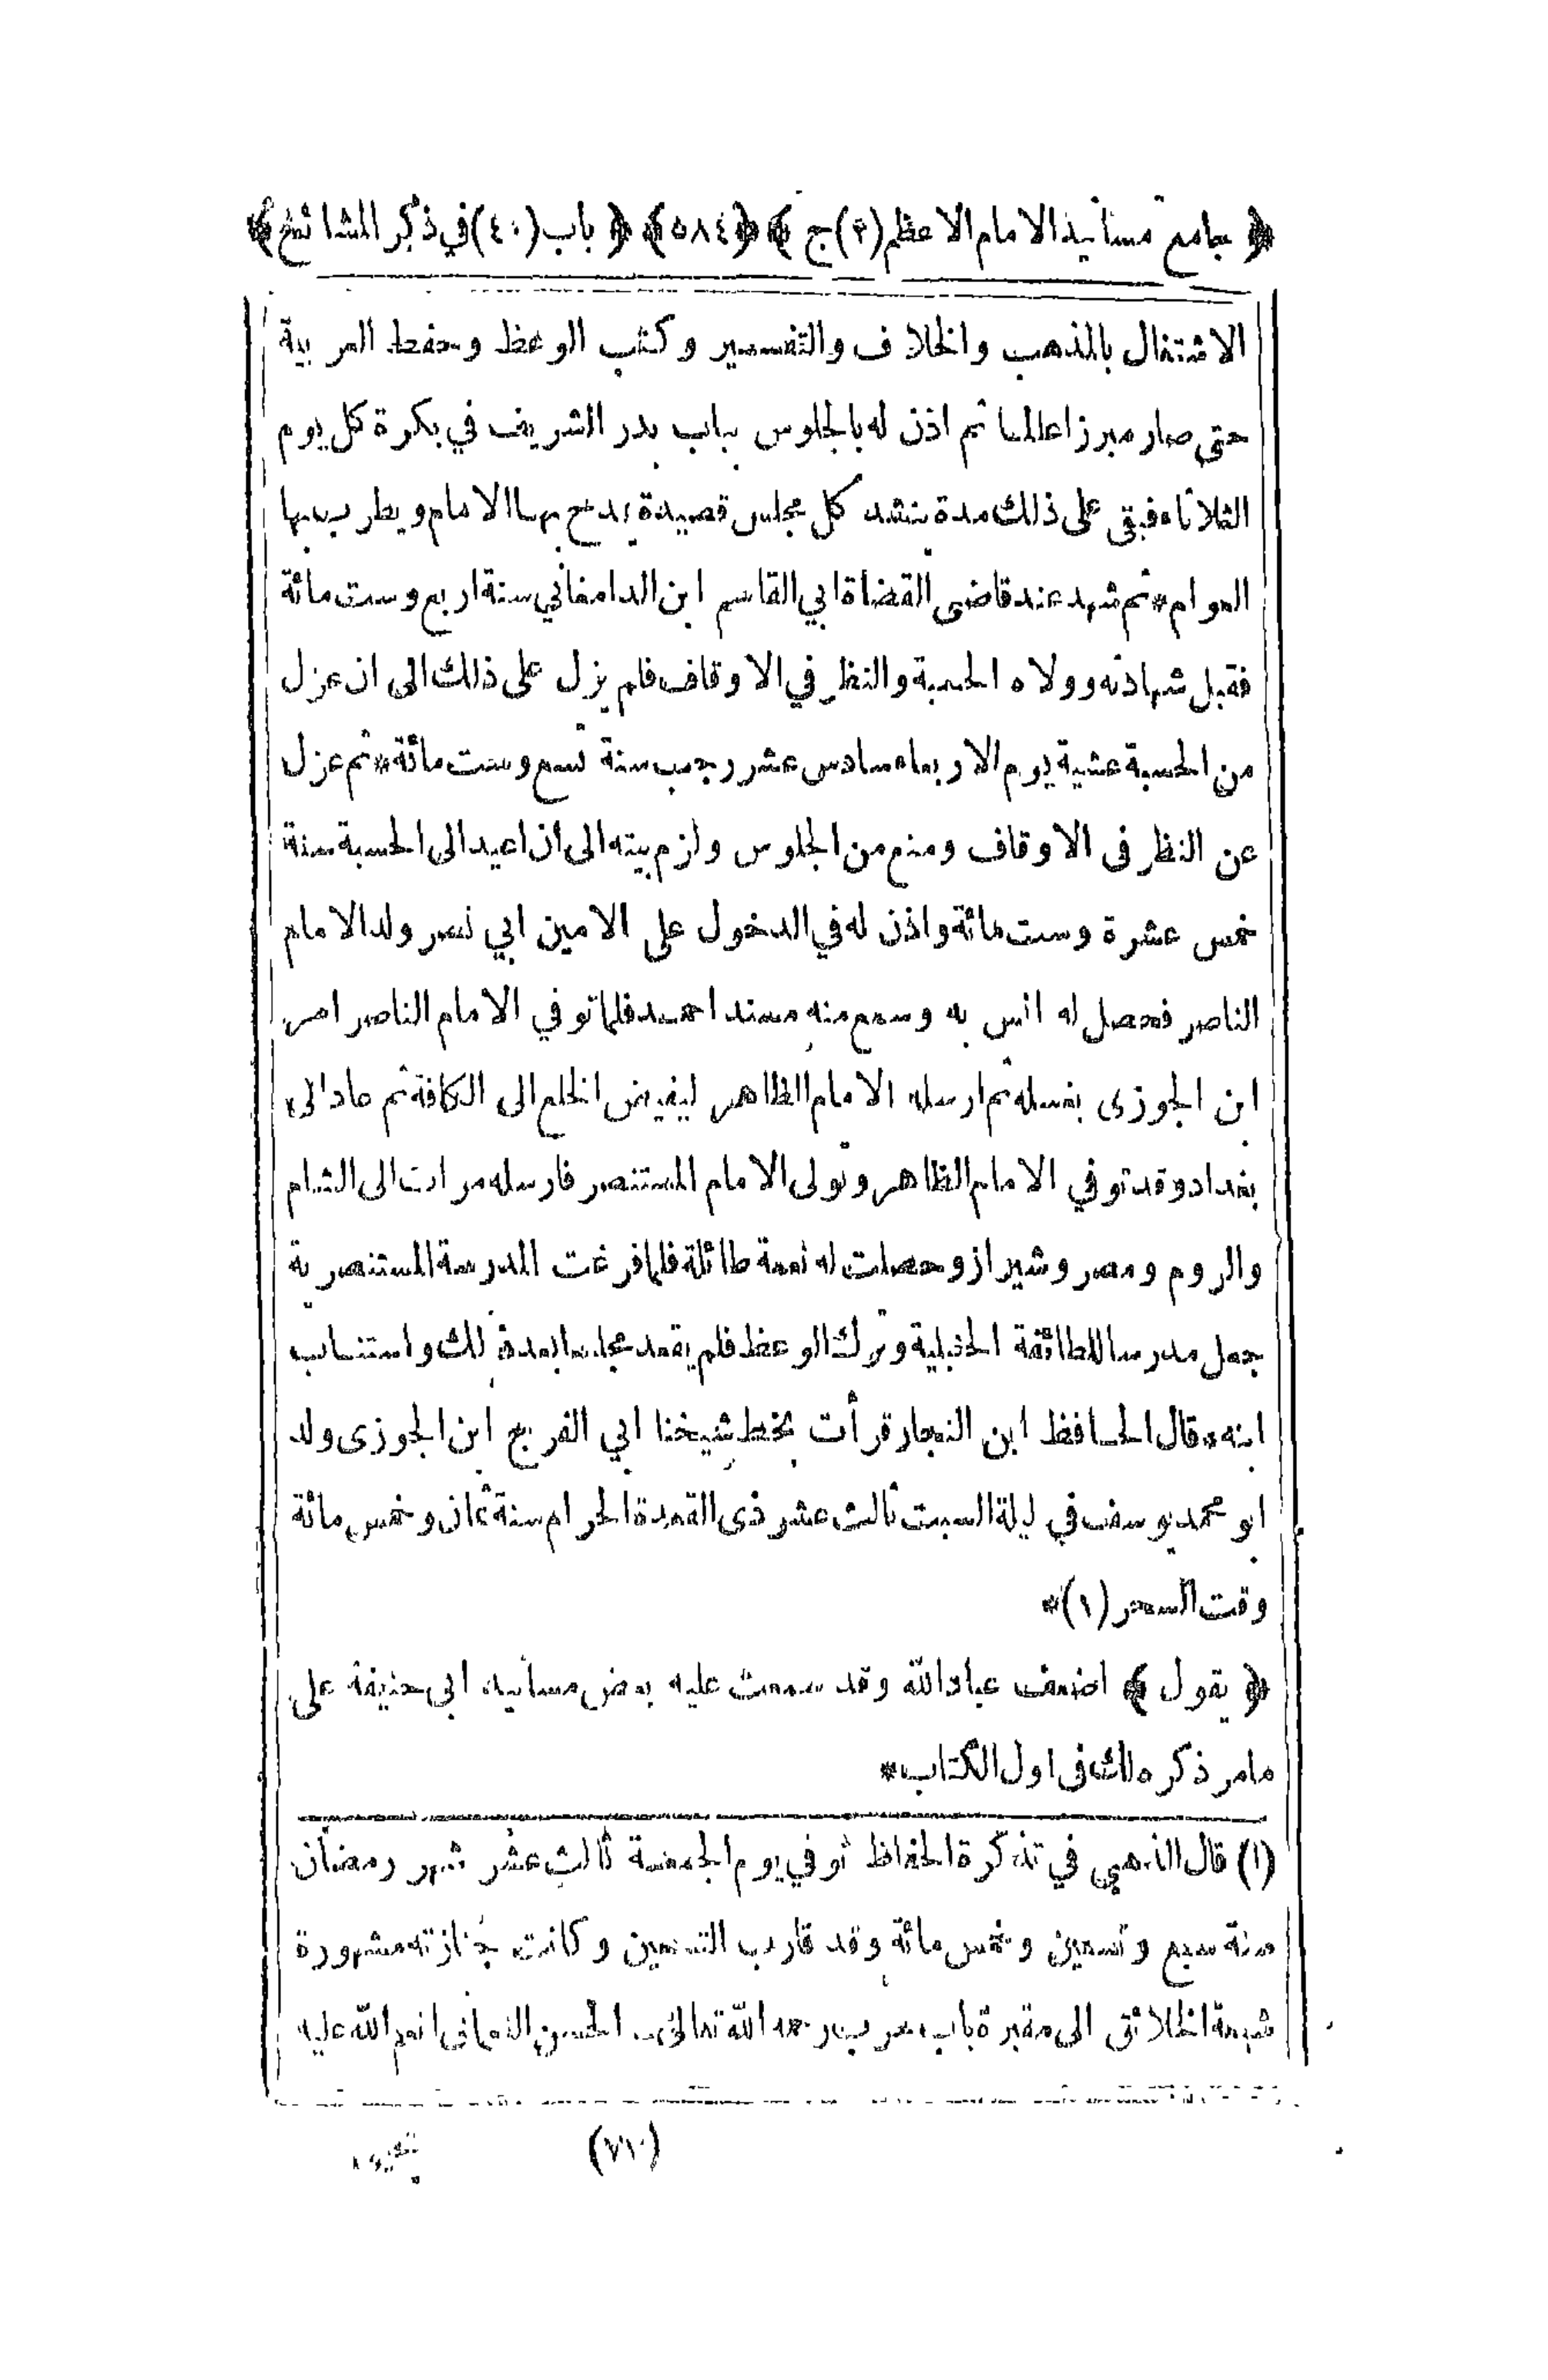 ﴿ جامع مسانيد الامام الاعظم (٢) ج ﴾ ﴿٥٨٤﴾ ﴿ باب (٤٠) في ذكر المشائخ ﴾
الاشتغال بالمذهب والخلاف والتفسير وكتب الوعظ وحفظ العربية
حتى صار مبرزا عالما ثم اذن له بالجلوس بباب بدر الشريف في بكرة كل يوم
الثلاثاء فبقى على ذلك مدة ينشد كل مجلس قصيدة يمدح بها الامام ويطرب بها
العوام * ثم شهد عند قاضى القضاة ابي القاسم ابن الدامغاني سنة اربع وست مائة
فقبل شهادته وولاه الحسبة والنظر في الاوقاف فلم يزل على ذلك الى ان عزل
من الحسبة عشية يوم الاربعاء سادس عشر رجب سنة تسع وست مائة * ثم عزل
عن النظر فى الاوقاف ومنع من الجلوس ولزم بيته الى ان اعيد الى الحسبة سنة
خمس عشرة وست مائة واذن له في الدخول على الامين ابي نصر ولد الامام
الناصر فحصل له انس به وسمع منه مسند احمد فلما توفي الامام الناصر امر
ابن الجوزى بغسله ثم ارسله الامام الظاهر ليفيض الخلع الى الكافة ثم عاد الى
بغداد وقد توفي الامام الظاهر وتولى الامام المستنصر فارسله مرات الى الشام
والروم ومصر وشيراز وحصلت له نعمة طائلة فلما فرغت المدرسة المستنصرية
جعل مدرسا للطائفة الحنبلية وترك الوعظ فلم يعقد مجلسا بعد ذلك واستناب
ابنه * قال الحافظ ابن النجار قرأت بخط شيخنا ابي الفرج ابن الجوزى ولد
ابو محمد يوسف في ليلة السبت ثالث عشر ذى القعدة الحرام سنة ثمان وخمس مائة
وقت السحر (١) *
﴿ يقول ﴾ اضعف عباد الله وقد سمعت عليه بعض مسانيد ابى حنيفة على
مامر ذكره لك فى اول الكتاب *
(١) قال الذهبي في تذكرة الحفاظ توفي يوم الجمعة ثالث عشر شهر رمضان
سنة سبع وتسعين وخمس مائة وقد قارب التسعين وكانت جنازته مشهورة
شيعه الخلائق الى مقبرة باب حرب رحمه الله تعالى الحسن النعمانى انعم الله عليه